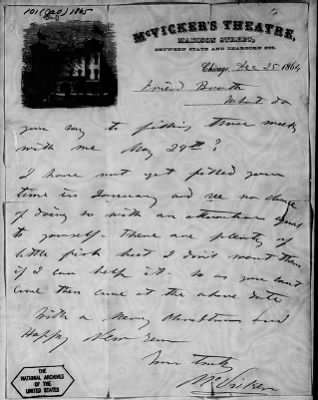 101 (JAO) 1865
McVICKER'S THEATRE,
MADISON STREET,
BETWEEN STATE AND DEARBORN STS.
Chicago, Dec 25 1864
Friend Booth
What do
you say to filling three weeks
with me May 29th?
I have not yet filled your
time in January and see no chance
of doing so with an attraction equal
to yourself. There are plenty of
little fish but I don't want them
if I can help it. So as you can't
come then come at the above date
With a Merry Christmas and
Happy New Year
Yours truly
McVicker
THE
NATIONAL ARCHIVES
OF THE
UNITED STATES